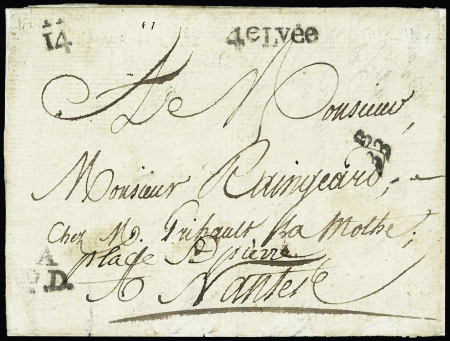 14
4e Lvée
A Monsieur
B
33
Monsieur Raingeard,
Chez M. Thibault La Mothe;
place St pierre
A
P.D.
A Nantes